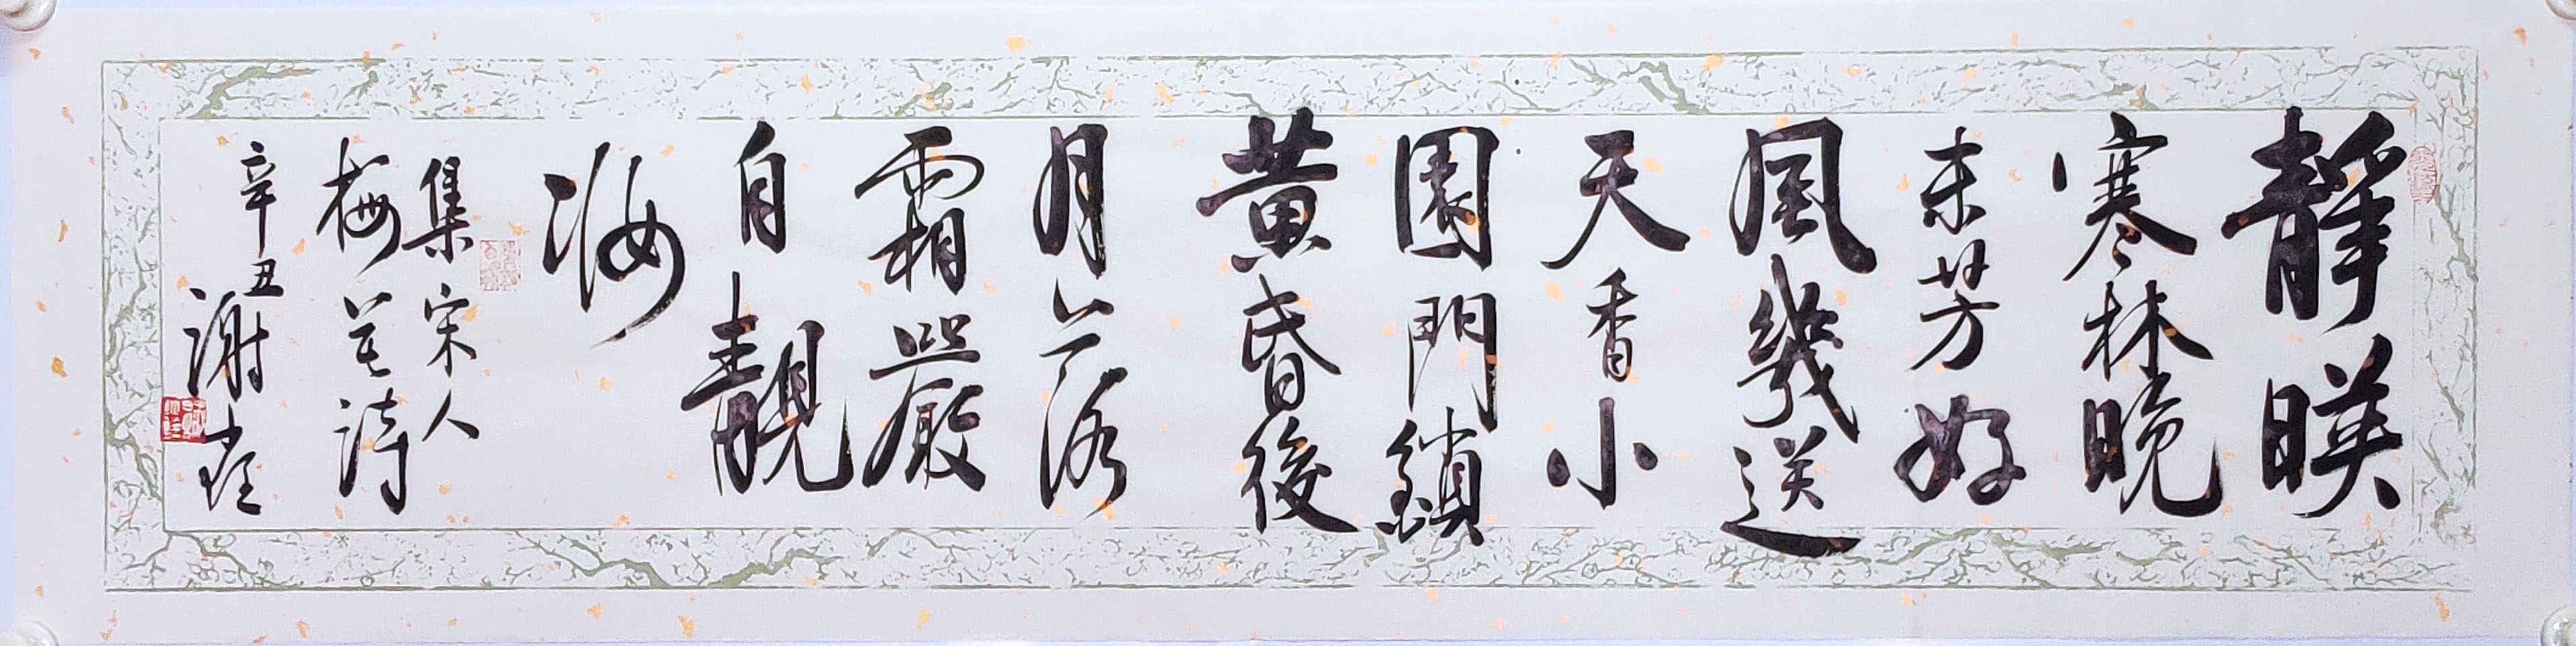 靜暎
寒林晚
未芳好
風幾送
天香小
園門鎖
黃昏後
月落
霜嚴
自靚
妝
集宋人
梅花詩
辛丑
謝